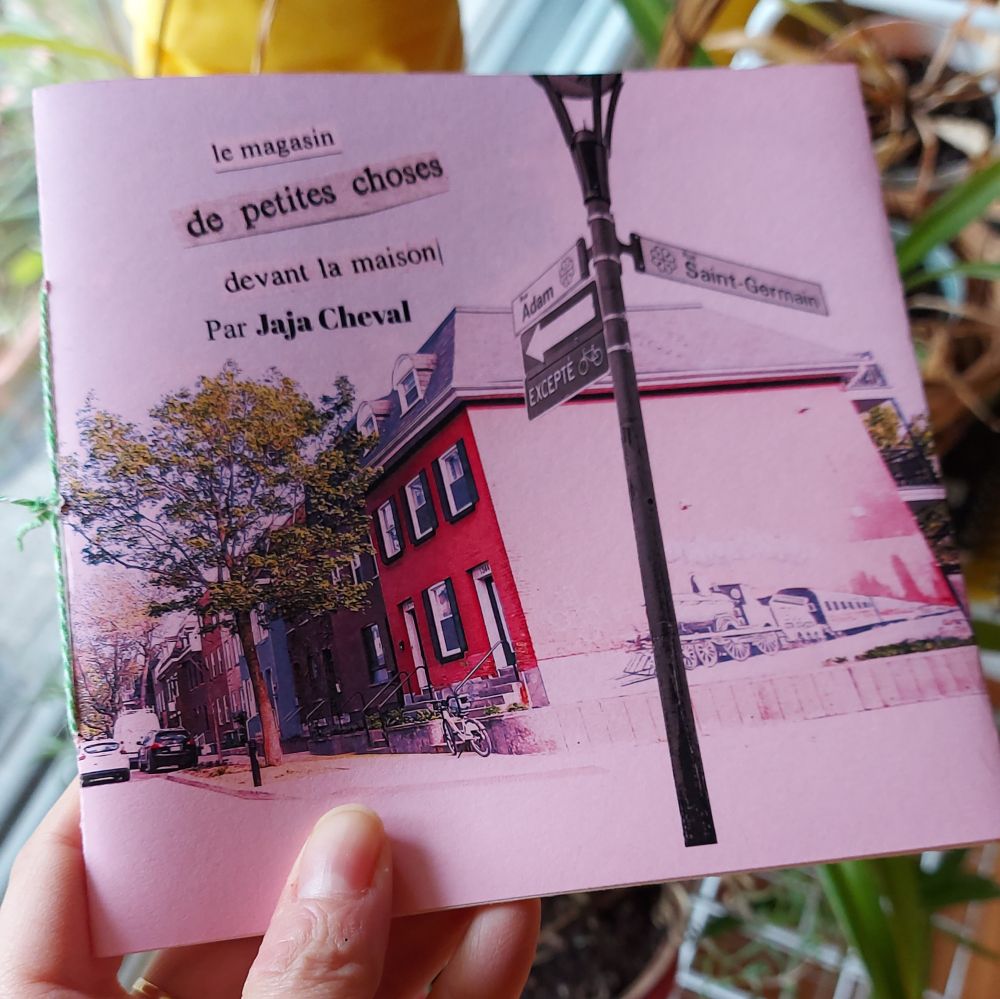 le magasin
de petites choses
devant la maison|
Par Jaja Cheval
Rue
Adam
EXCEPTÉ
Saint-Germain